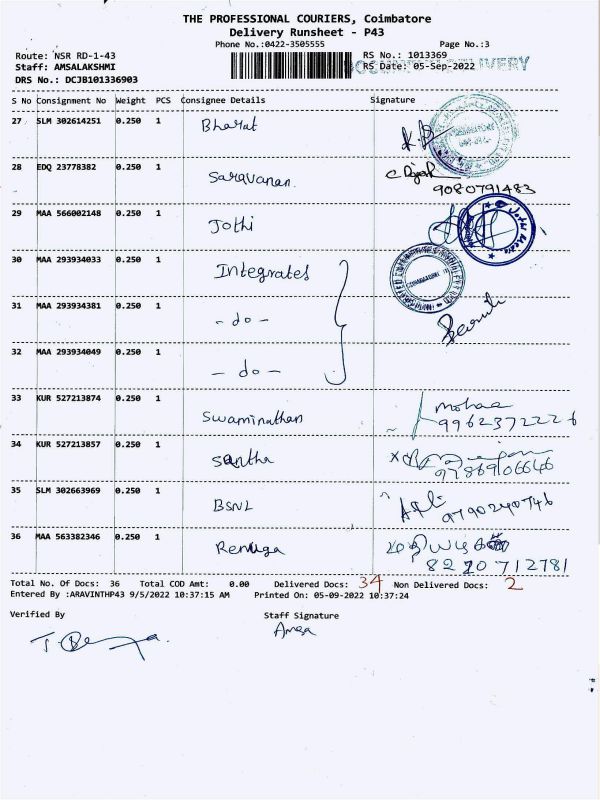 THE PROFESSIONAL COURIERS, Coimbatore
Delivery Runsheet - P43
Phone No.:0422-3505555 Page No.:3
Route: NSR RD-1-43 RS No.: 1013369
Staff: AMSALAKSHMI RS Date: 05-Sep-2022
DRS No.: DCJB101336903
S No Consignment No Weight PCS Consignee Details Signature
27 SLM 302614251 0.250 1 Bharat
28 EDQ 23778382 0.250 1 Saravanan
9080791483
29 MAA 566002148 0.250 1 Jothi
30 MAA 293934033 0.250 1 Integrates
31 MAA 293934381 0.250 1 - do -
32 MAA 293934049 0.250 1 - do -
33 KUR 527213874 0.250 1 Swaminathan
9962372226
34 KUR 527213857 0.250 1 Santha
9786906646
35 SLM 302663969 0.250 1 BSNL
9790240746
36 MAA 563382346 0.250 1 Renuga
8220712781
Total No. Of Docs: 36 Total COD Amt: 0.00 Delivered Docs: 34 Non Delivered Docs: 2
Entered By :ARAVINTHP43 9/5/2022 10:37:15 AM Printed On: 05-09-2022 10:37:24
Verified By Staff Signature